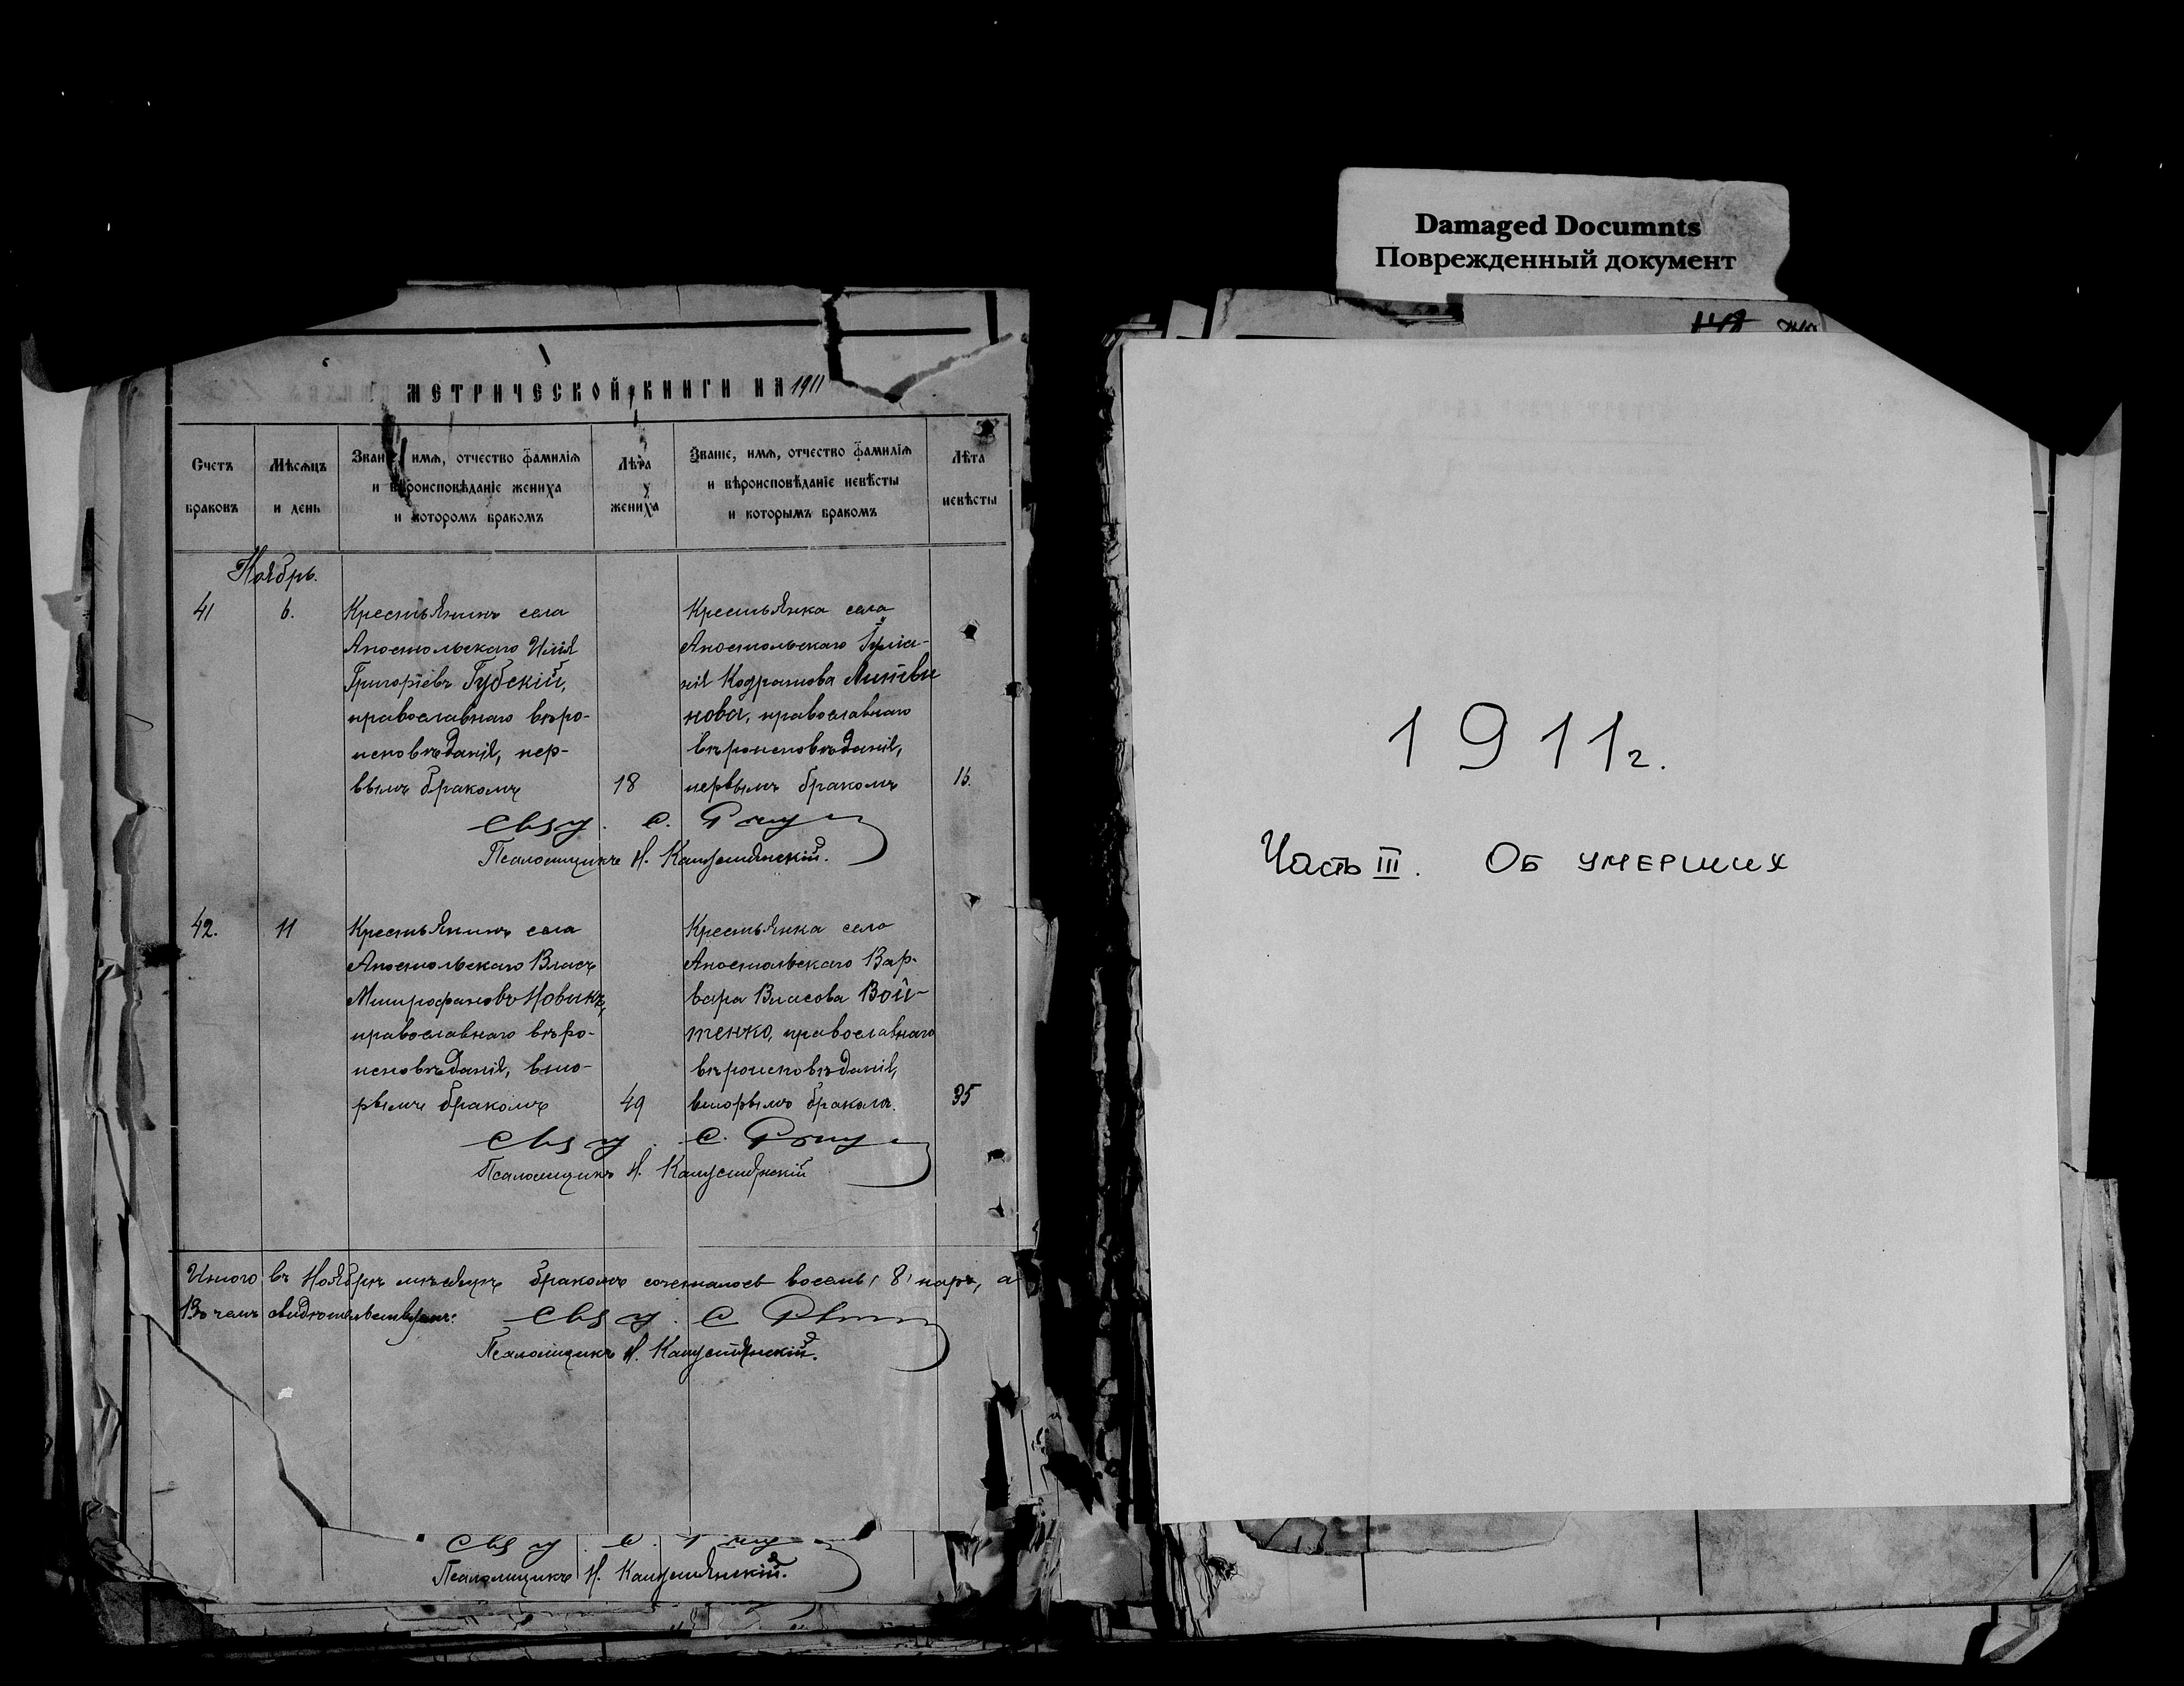 Damaged Documnts
Поврежденный документ
МЕТРИЧЕСКОЙ КНИГИ НА 1911
Счетъ браковъ
Мѣсяцъ и день
Званіе, имя, отчество фамилія и вѣроисповѣданіе жениха и которомъ бракомъ
Лѣта жениха
Званіе, имя, отчество фамилія и вѣроисповѣданіе невѣсты и которымъ бракомъ
Лѣта невѣсты
Ноябрь.
41
6.
Крестьянинъ села
Апостольскаго Илія
Григоріевъ Губскій,
православнаго вѣро-
исповѣданія, пер-
вымъ бракомъ
18
Крестьянка села
Апостольскаго Іуліа-
нія Кодратова
нова, православнаго
вѣроисповѣданія,
первымъ бракомъ
16.
Свящ. С.
Псаломщикъ Н. Капустянскій.
42.
11
Крестьянинъ села
Апостольскаго Власъ
Митрофановъ Новикъ,
православнаго вѣро-
исповѣданія, вто-
рымъ бракомъ
49
Крестьянка села
Апостольскаго Вар-
вара Власова Вой-
тенко, православнаго
вѣроисповѣданія,
вторымъ бракомъ.
35
Свящ. С.
Псаломщикъ Н. Капустянскій
Итого въ Ноябрѣ мѣсяцѣ бракомъ сочеталось восемь (8) паръ, а
Въ чемъ свидѣтельствуемъ:
Свящ. С.
Псаломщикъ Н. Капустянскій.
Свящ. С.
Псаломщикъ Н. Капустянскій.
1911г.
Часть III. Об умерших